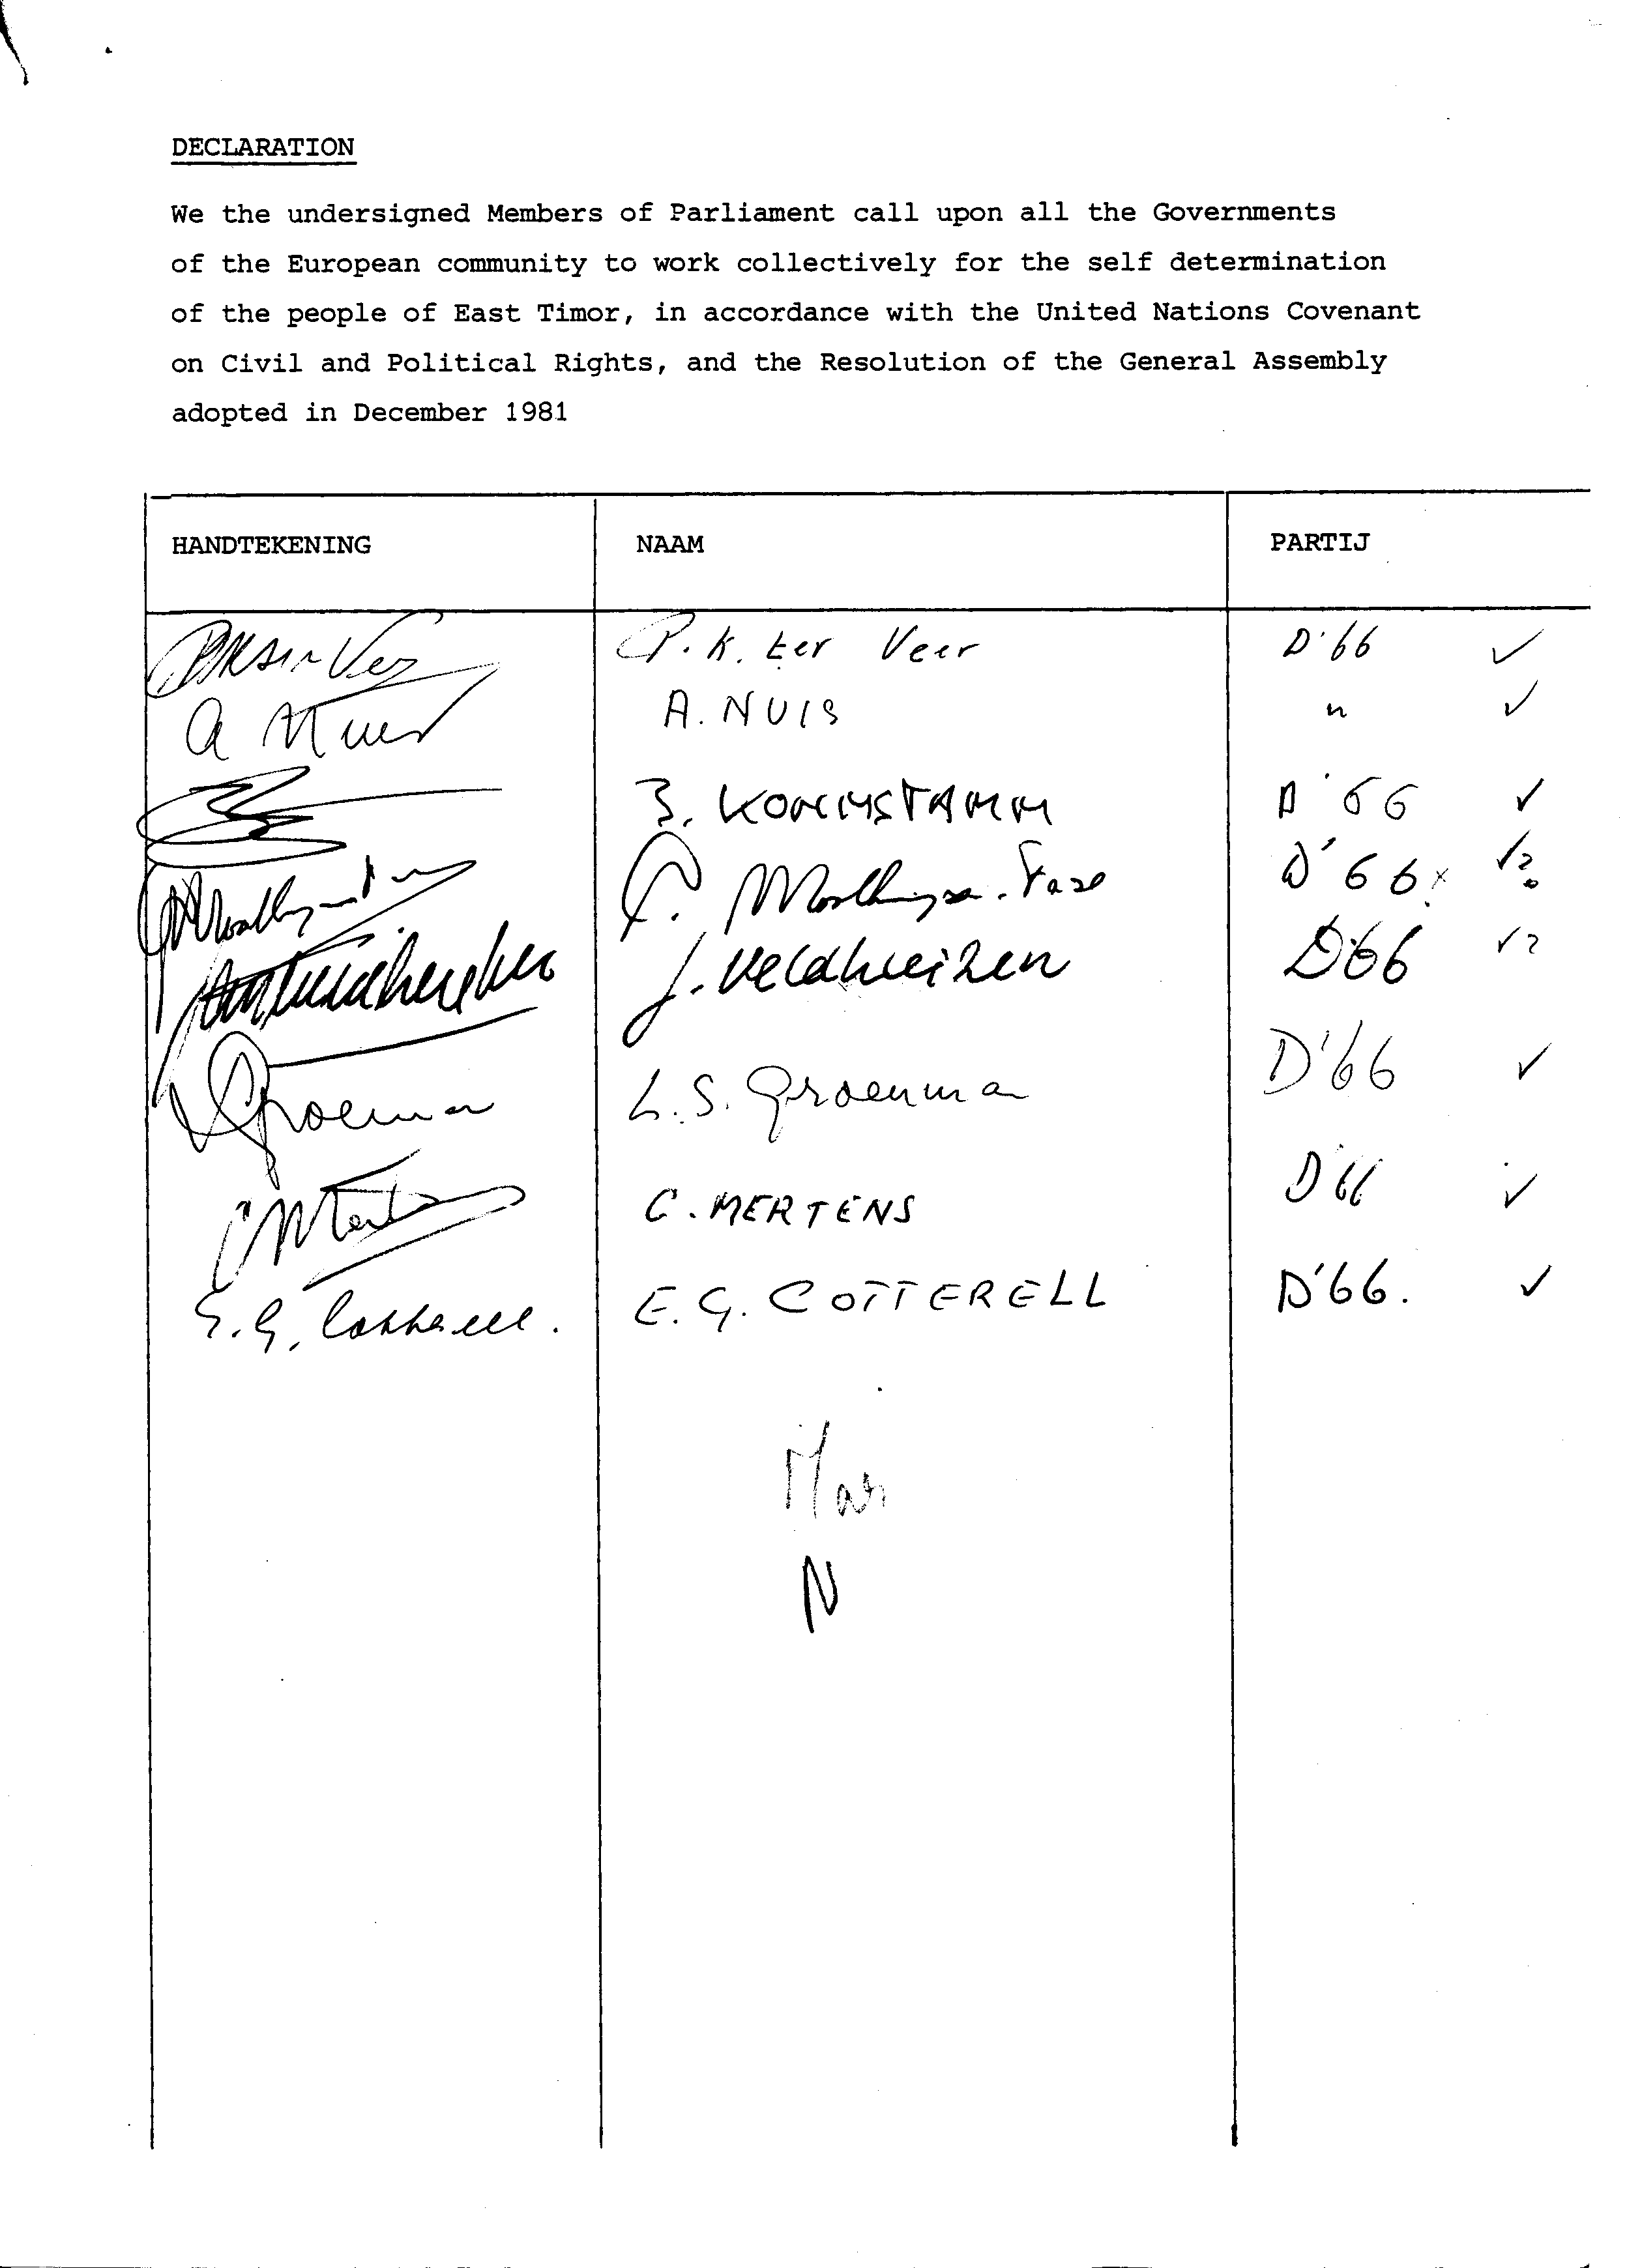 DECLARATION
We the undersigned Members of Parliament call upon all the Governments
of the European community to work collectively for the self determination
of the people of East Timor, in accordance with the United Nations Covenant
on Civil and Political Rights, and the Resolution of the General Assembly
adopted in December 1981
HANDTEKENING NAAM PARTIJ
P.K. ter Veer D'66 ✓
A. NUIS " ✓
KOHNSTAMM D'66 ✓
D'66 x ✓?
J. Veldhuizen D'66 ✓?
Groenman L.S. Groenman D'66 ✓
C. MERTENS D66 ✓
E.G. Cotterell. E.G. COTTERELL D'66. ✓
N